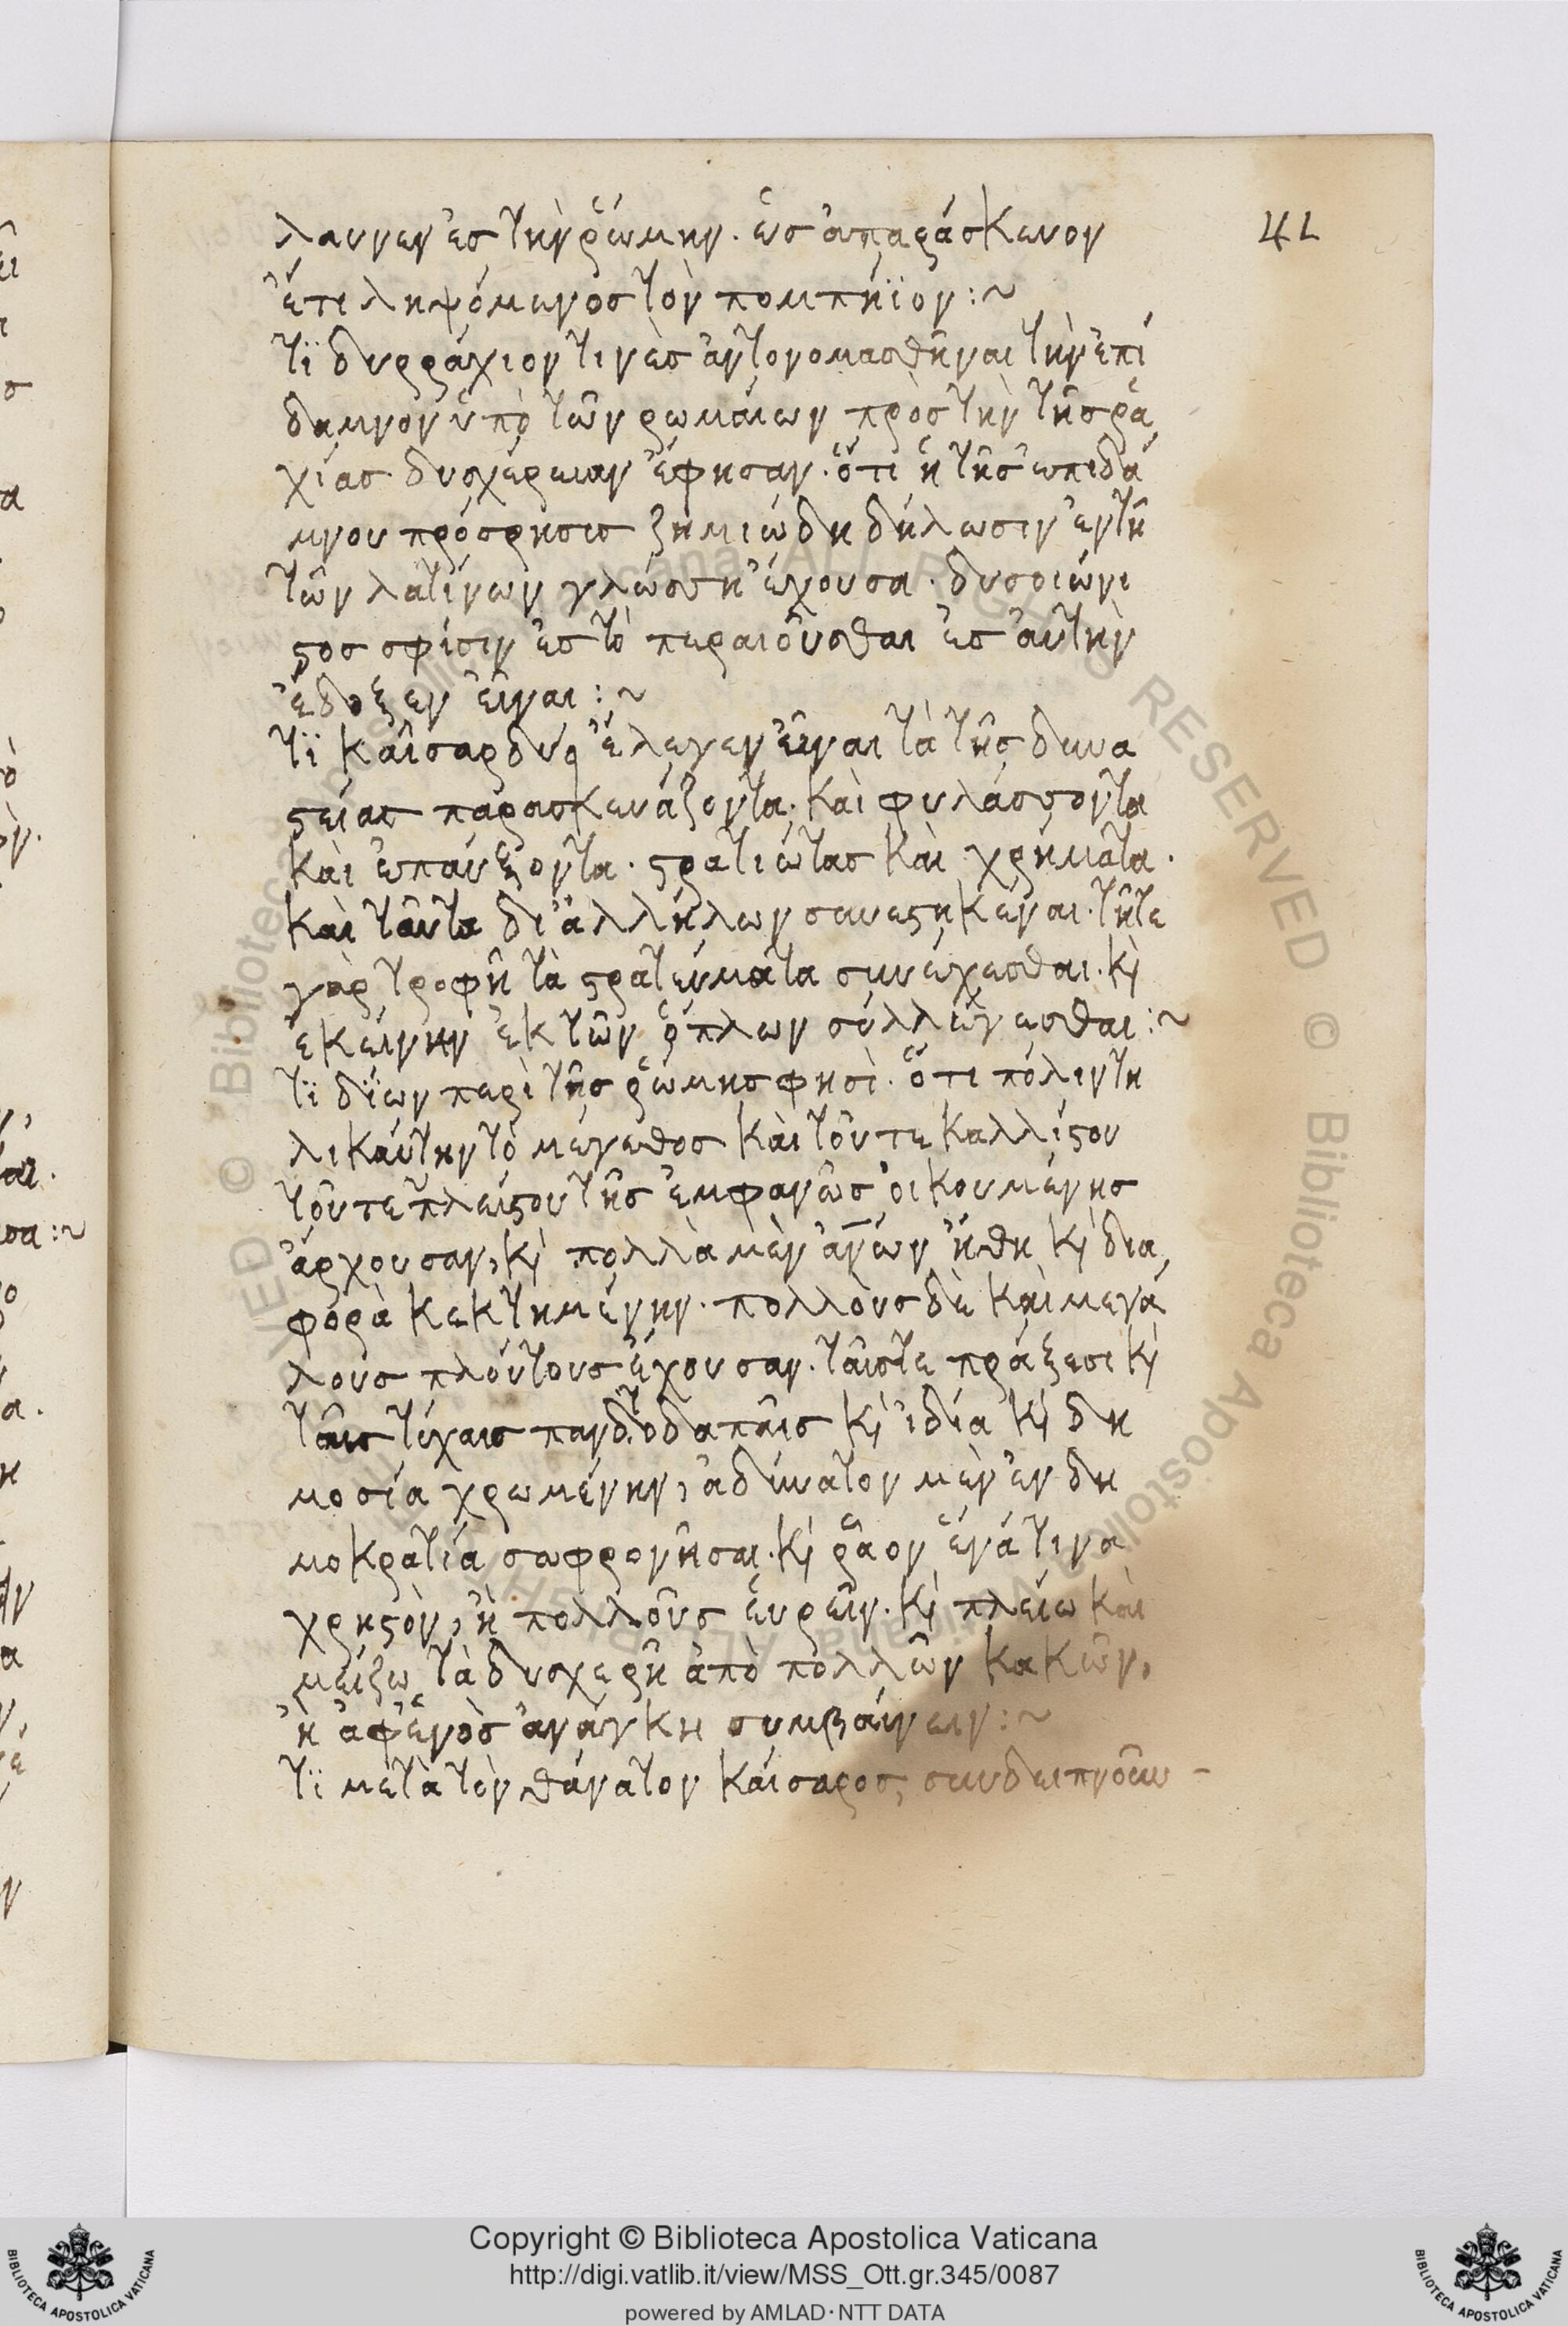 λαυνεν ἐσ τὴν ῥώμην. ὡσ ἀπαράσκευον
ἔτι ληψόμενοσ τὸν πομπήϊον:~
τϊ δυρράχιον τινὲσ ἀντονομασθῆναι τὴν ἐπί
δαμνον ὑπὸ τῶν ρωμαίων πρὸσ τὴν τῆσ ῥα
χίασ δυσχέρειαν ἔφησαν. ὅτι ἡ τῆσ ἐπιδά
μνου πρόσρησισ ζημιώδη δήλωσιν ἐν τῆ
τῶν λατίνων γλώσση ἔχουσα. δυσοιώνι
ϛοσ σφίσιν ἐσ τὸ περαιοῦσθαι ἐσ αὐτὴν
ἔδοξεν εἶναι:~
τϊ καῖσαρ δύο ἔλεγεν εἶναι τὰ τῆσ δυνα
ϛείασ παρασκευάζοντα. καὶ φυλάσσοντα
καὶ ἐπαύξοντα. ϛρατιώτασ καὶ χρήματα.
καὶ ταῦτα δι' ἀλλήλων συνεϛηκέναι. τῆτε
γὰρ τροφῆ τὰ ϛρατεύματα συνέχεσθαι. κὶ
ἐκείνην ἐκ τῶν ὅπλων συλλέγεσθαι:~
τϊ δΐων περὶ τῆσ ῥώμησ φησὶ. ὅτι πόλιν τη
λικαύτην τὸ μέγεθοσ καὶ τοῦ τε καλλίϛου
τοῦ τε πλείϛου τῆσ ἐμφανῶσ οἰκουμένησ
ἄρχουσαν, κὶ πολλὰ μὲν ἀνων ἤθη κὶ δια
φορὰ κεκτημένην. πολλοὺσ δὲ καὶ μεγά
λουσ πλούτουσ ἔχουσαν. ταῖστε πράξεσι κὶ
ταῖσ τύχαισ παντοδαπαῖσ κὶ ἰδία κὶ δη
μοσία χρωμένην, ἀδύνατον μὲν ἐν δη
μοκρατία σωφρονῆσαι. κὶ ῥᾶον ἕνά τινα
χρηϛὸν, ἢ πολλοῦσ εὑρεῖν. κὶ πλείω καὶ
μείζω τὰ δυσχερῆ ἀπὸ πολλῶν κακῶν,
ἢ ἀφ' ἑνὸσ ἀνάγκη συμβαίνειν:~
τϊ μετὰ τὸν θάνατον καίσαροσ, συνδειπνοῦν-
Copyright © Biblioteca Apostolica Vaticana
http://digi.vatlib.it/view/MSS_Ott.gr.345/0087
powered by AMLAD·NTT DATA